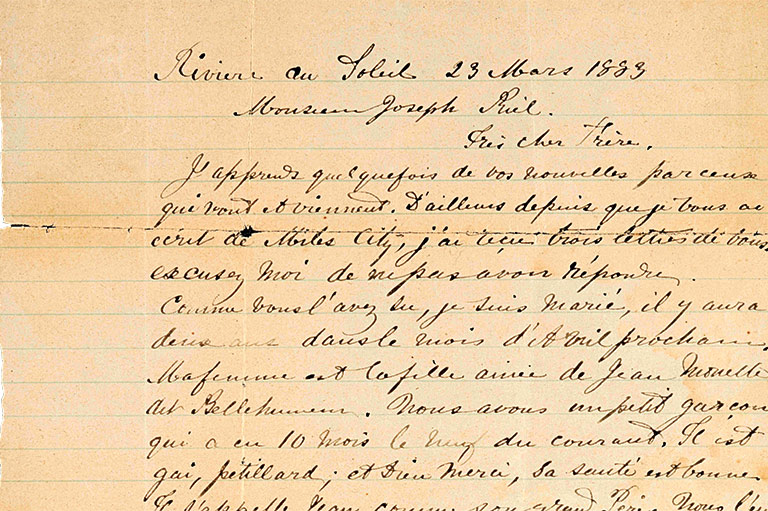 Riviere au Soleil 23 Mars 1883
Monsieur Joseph Riel.
Très cher Frère.
J'apprends quelquefois de vos nouvelles par ceux
qui vont et viennent. D'ailleurs depuis que je vous ai
écrit de Miles City, j'ai reçu trois lettres de vous.
excusez moi de ne pas avoir répondu.
Comme vous l'avez su, je suis marié, il y aura
deux ans dans le mois d'Avril prochain.
Ma femme est la fille ainée de Jean Monette
dit Bellehumeur. Nous avons un petit garçon
qui a eu 10 mois le neuf du courant. Il est
gai, pétillard; et Dieu merci, sa santé est bonne
Il s'appelle Jean comme son grand Père. Nous l'